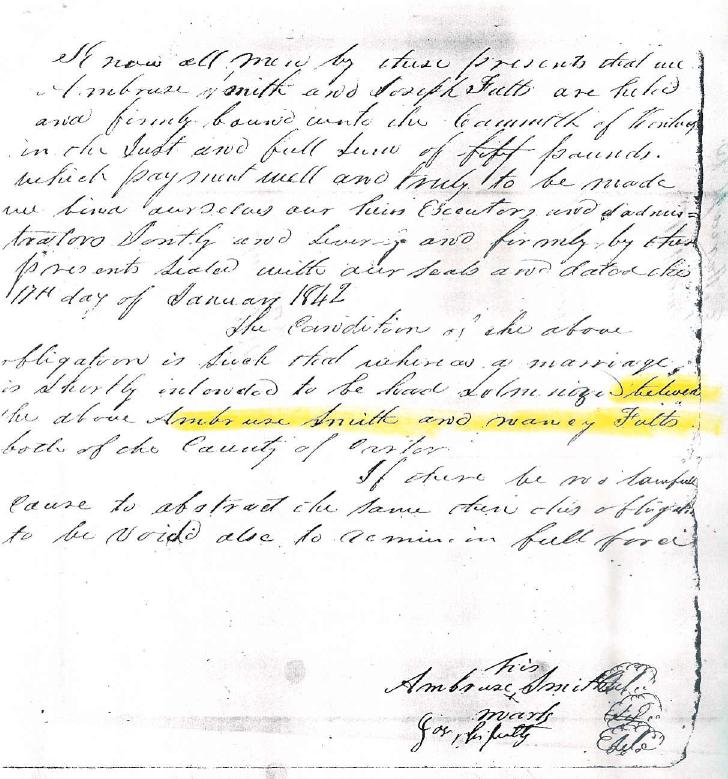 Know all men by these presents that we
Ambruse Smith and Joseph Fults are held
and firmly bound unto the Commth of
in the Just and full Sum of fift pounds.
which payment well and truly to be made
we bind ourselves our heirs Executors and adminis=
trators Jontly and and firmly by these
presents sealed with our seals and dated this
17th day of January 1842
The Condition of the above
obligation is such that whereas a marriage
is shortly intended to be had between
the above Ambruse Smith and nancy Fults
both of the County of
If there be no lawfull
Cause to abstract the same then this
to be void also to in full force
his
Ambruse Smith
mark